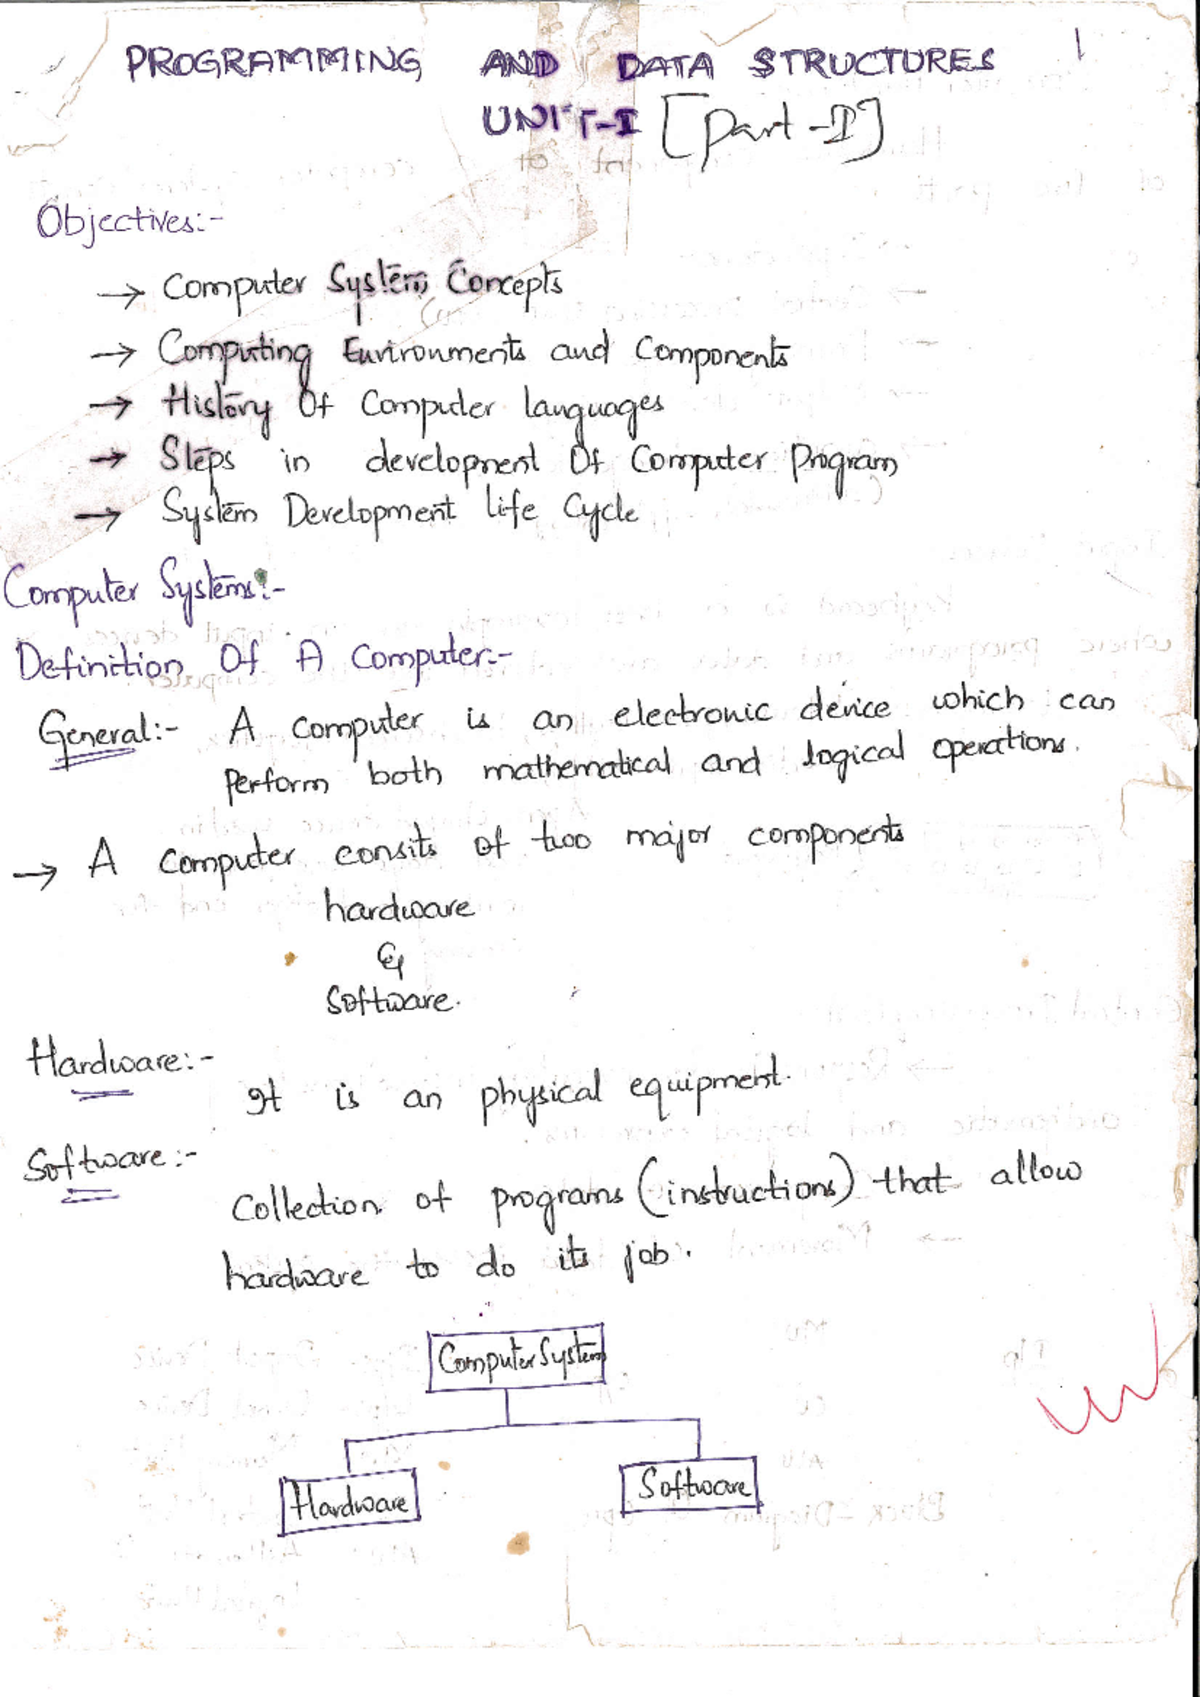 PROGRAMMING AND DATA STRUCTURES 1
UNIT-I [Part-I]
Objectives:-
→ Computer System Concepts
→ Computing Environments and Components
→ History Of Computer languages
→ Steps in development Of Computer Program
→ System Development life Cycle
Computer Systems:-
Definition Of A Computer:-
General:- A computer is an electronic device which can
Perform both mathematical and logical operations.
→ A computer consits of two major components
hardware
&
Software.
Hardware:-
It is an physical equipment.
Software:-
Collection of programs (instructions) that allow
hardware to do its job.
Computer System
Hardware Software